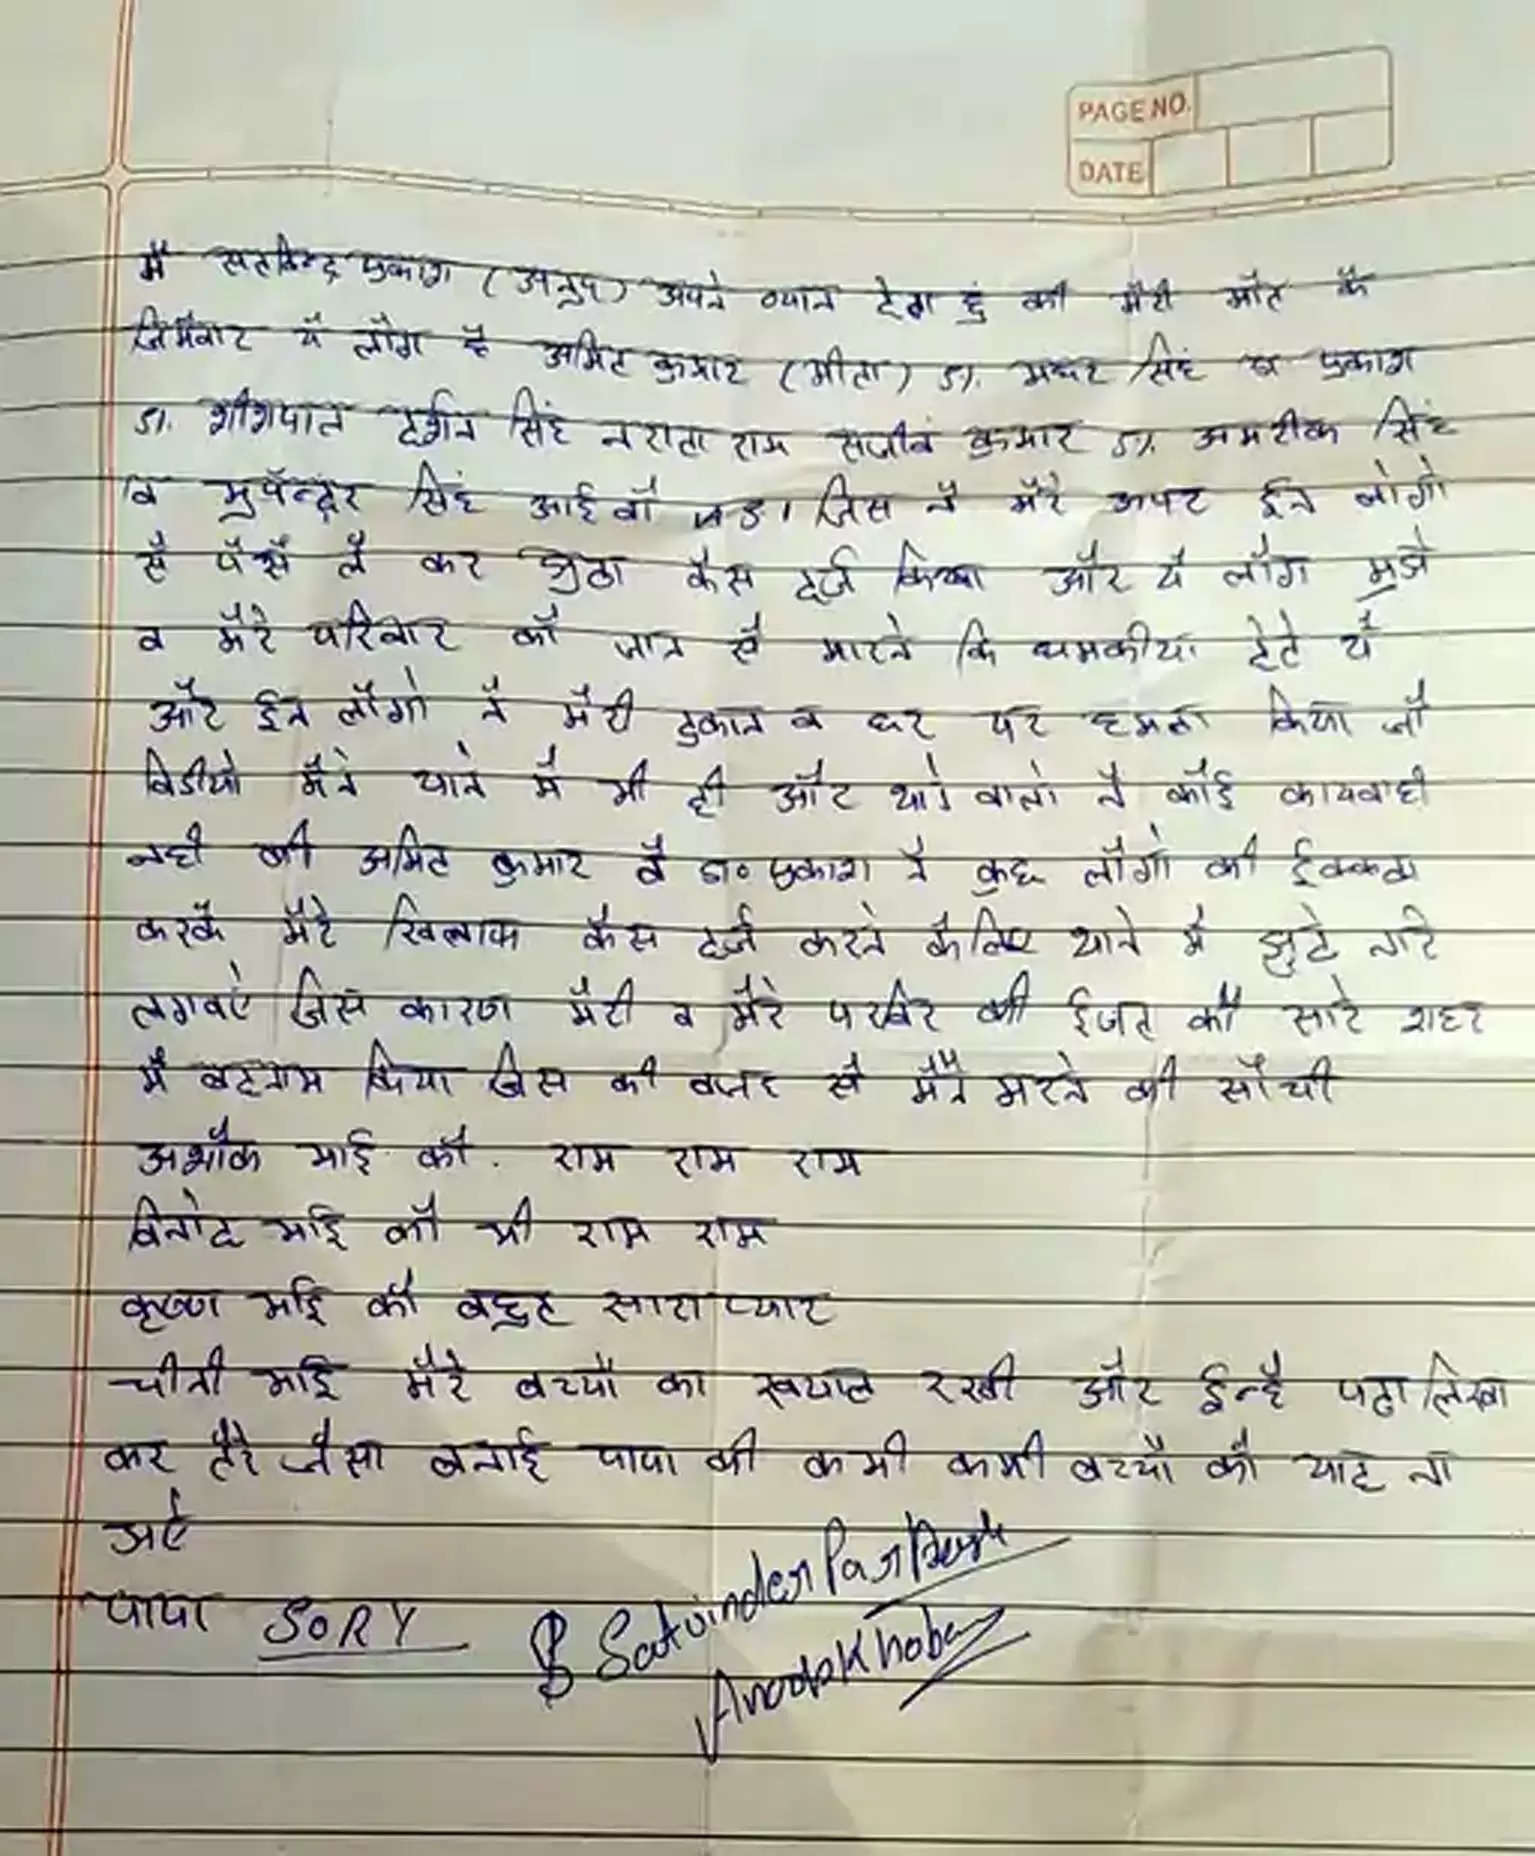 PAGE NO.
DATE
मैं सतविन्द्र प्रकाश (अनुप) अपने ब्यान देता हुं की मैरी मौत कै
जिमेवार यै लौग है अमित कुमार (मीता) डा. मद्दर सिंह व प्रकाश
डा. शीशपाल दर्शन सिंह नराता राम सजीव कुमार डा. अमरीक सिंह
व भुपॅन्द्र सिंह आई वौ जिस नै मैरे अपर ईन लोगो
सै पैसै लै कर झुठा कैस दर्ज किया और यै लौग मुजे
व मैरे परिवार कौ जान सै मारने कि धमकीया देते यै
और ईन लौगो नै मैरी दुकान व घर पर हमला किया जौ
विडीयो मैने थाने मै भी दी और थाने वालो नै कौई कायवाही
नही की अमित कुमार वै डा० प्रकाश नै कुछ लौगो की ईक्कठा
करकै मैरे खिलाफ कैस दर्ज करने कैलिए थाने मै झुटे नारे
लगवऐ जिस कारण मैरी व मैरे परिवेर की ईजत कौ सारे शहर
मै बदनाम किया जिस की वजह सै मैनै मरने की सौची
अशौक भाई कौ. राम राम राम
विनोद भाई कौ भी राम राम
कृष्ण भाई कौ बहुत सारा प्यार
चीनी भाई मैरे बच्चौ का ख्याल रखी और ईन्है पढा लिखा
कर तैरे जैसा बनाई पापा की कमी कभी बच्चौ कौ याद ना
अऐ
पापा SORY Satvinder Parkash
Anoop Khobar